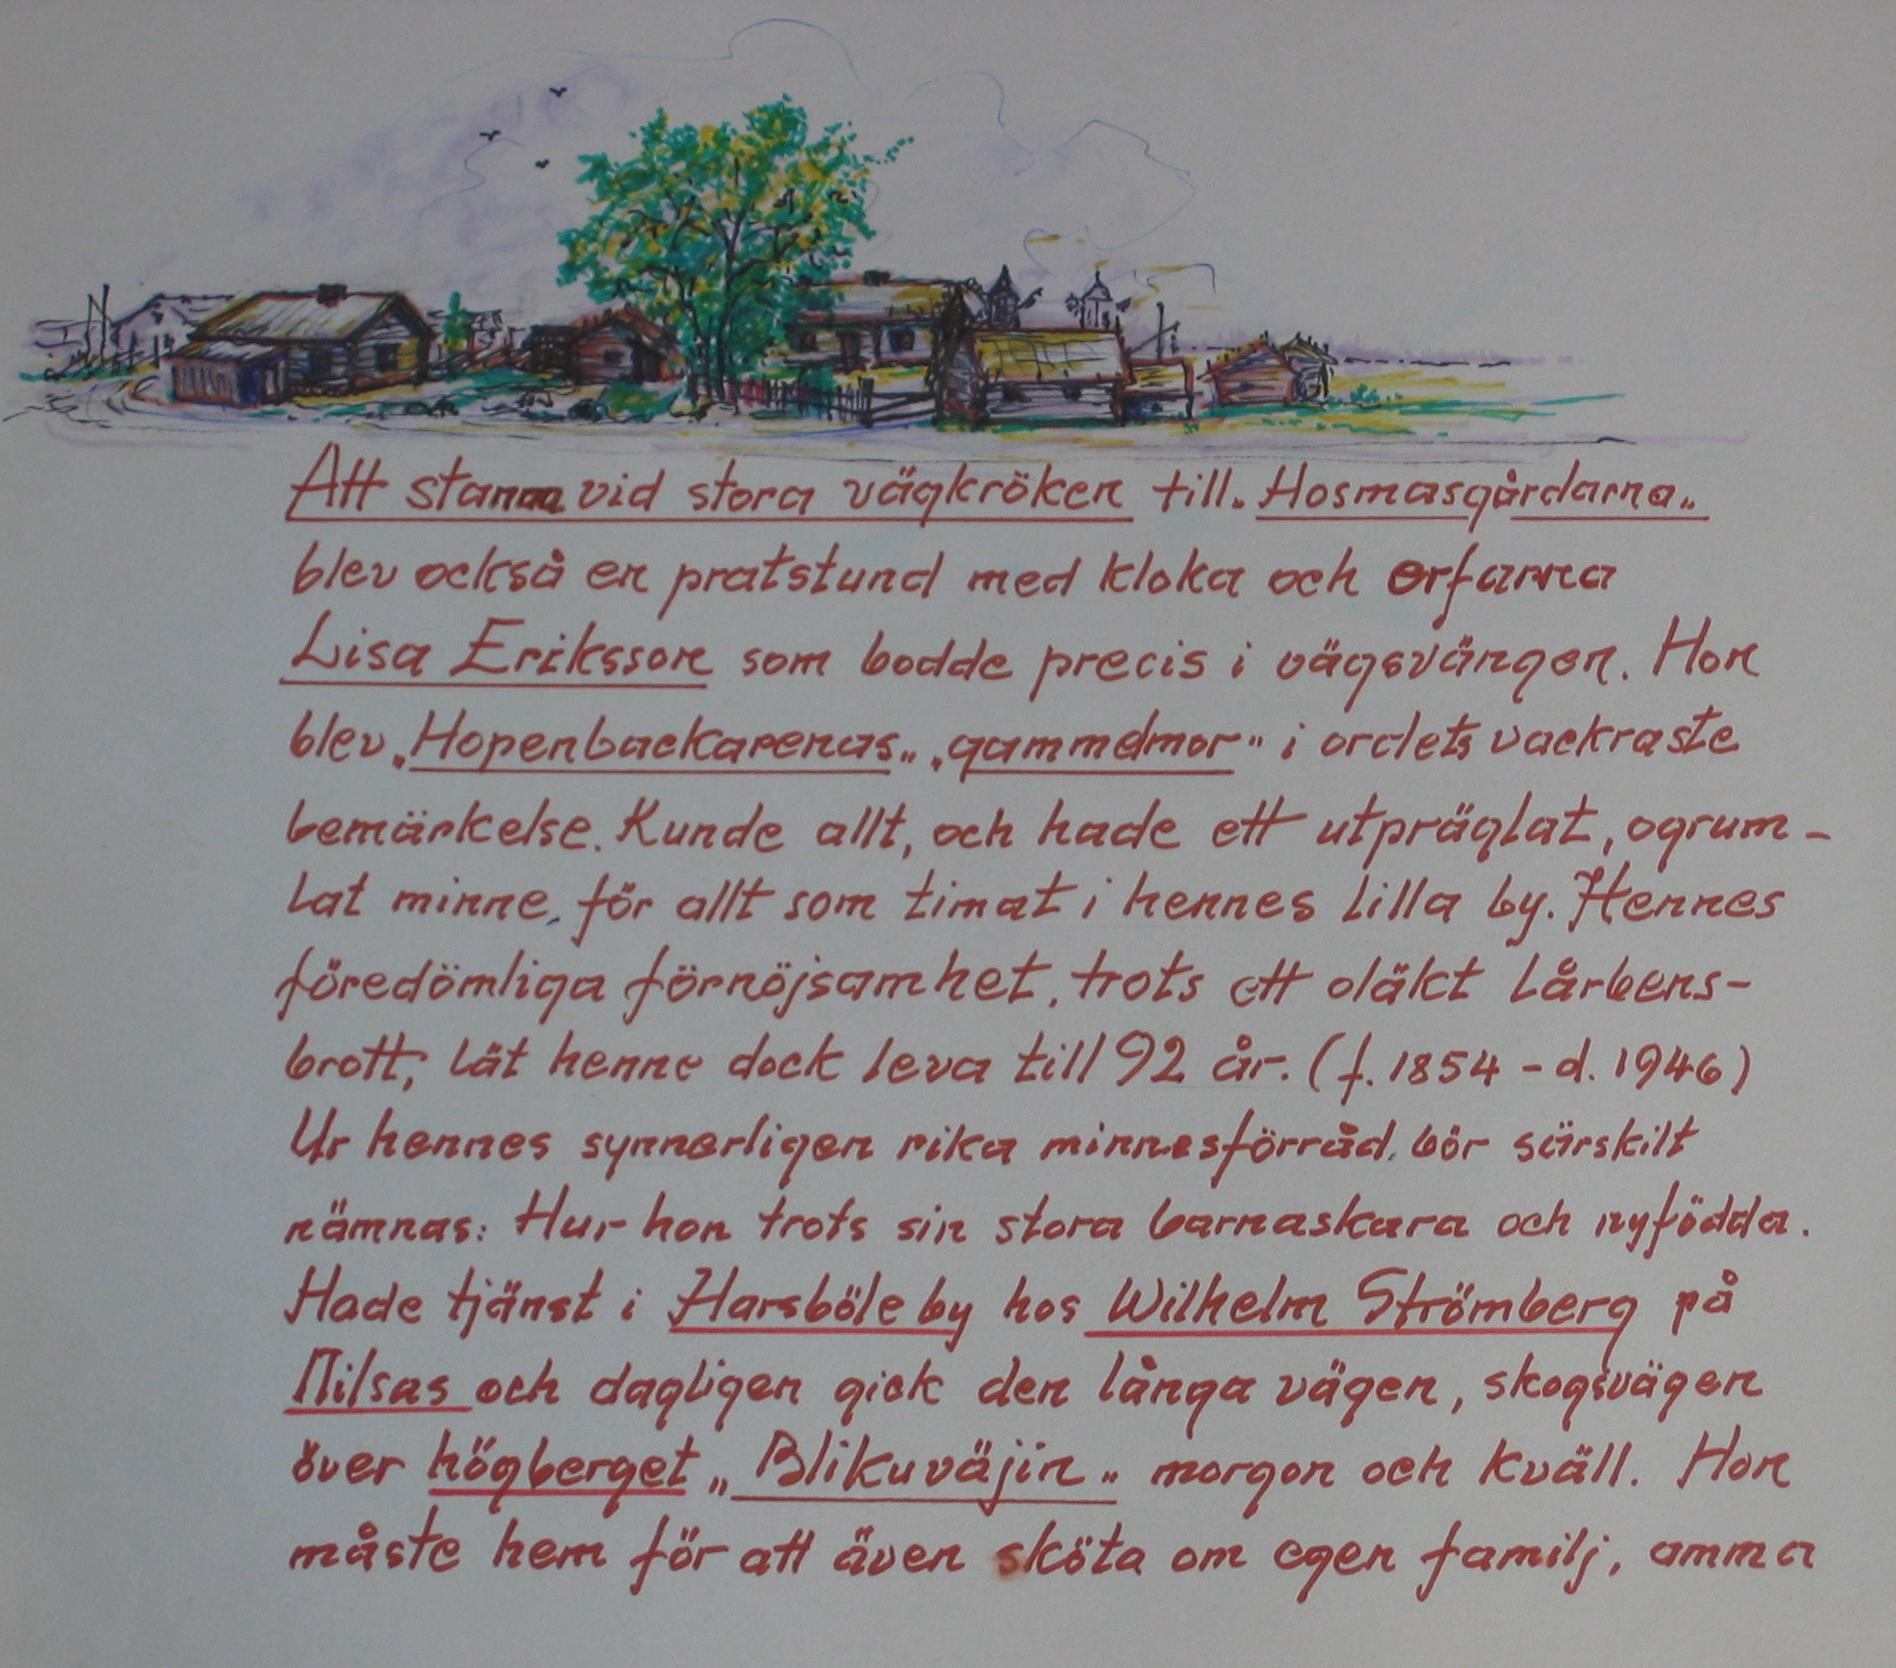 Att stanna vid stora vägkröken till „Hosmasgårdarna„
blev också en pratstund med kloka och erfarna
Lisa Eriksson som bodde precis i vägsvängen. Hon
blev „Hopenbackarenas„ „gammelmor" i ordets vackraste
bemärkelse. Kunde allt, och hade ett utpräglat, ogrum-
lat minne, för allt som timat i hennes lilla by. Hennes
föredömliga förnöjsamhet, trots ett oläkt lårbens-
brott, lät henne dock leva till 92 år. (f. 1854 - d. 1946)
Ur hennes synnerligen rika minnesförråd, bör särskilt
nämnas: Hur hon trots sin stora barnaskara och nyfödda.
Hade tjänst i Harsböle by hos Wilhelm Strömberg på
Nilsas och dagligen gick den långa vägen, skogsvägen
över högberget „Blikuväjin„ morgon och kväll. Hon
måste hem för att även sköta om egen familj, amma